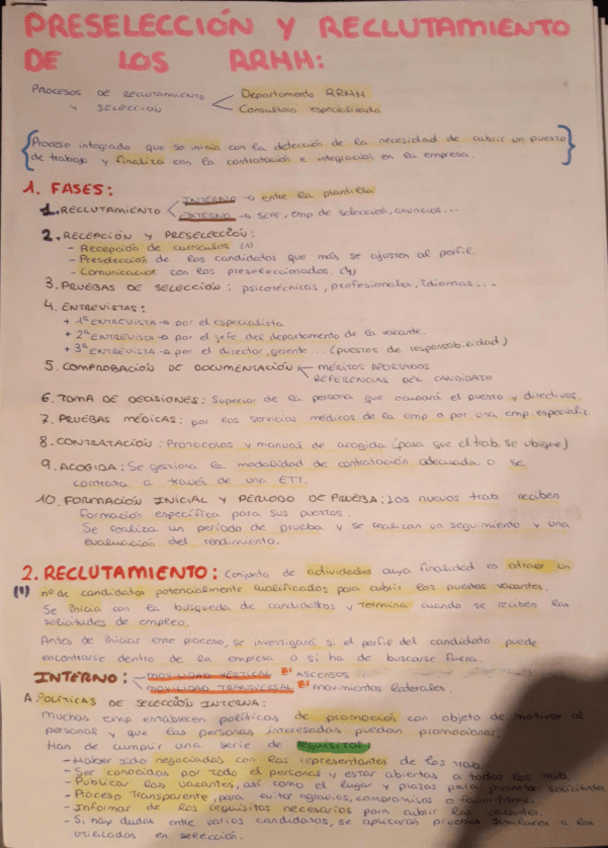 PRESELECCIÓN Y RECLUTAMIENTO
DE LOS RRHH:
PROCESOS DE RECLUTAMIENTO Departamento RRHH
Y SELECCIÓN Consultora especializada
Proceso integrado que se inicia con la detección de la necesidad de cubrir un puesto
de trabajo y finaliza con la contratación e integración en la empresa.
1. FASES:
1. RECLUTAMIENTO INTERNO → entre la plantilla
EXTERNO → SEPE, emp de selección, anuncios...
2. RECEPCIÓN Y PRESELECCIÓN:
- Recepción de currículos (1)
- Preselección de los candidatos que más se ajustan al perfil.
- Comunicación con los preseleccionados. (4)
3. PRUEBAS DE SELECCIÓN: psicotécnicas, profesionales, idiomas...
4. ENTREVISTAS:
+ 1ª ENTREVISTA → por el especialista
+ 2ª ENTREVISTA → por el jefe del departamento de la vacante.
+ 3ª ENTREVISTA → por el director, gerente... (puestos de responsabilidad)
5. COMPROBACIÓN DE DOCUMENTACIÓN MÉRITOS APORTADOS
REFERENCIAS DEL CANDIDATO
6. TOMA DE DECISIONES: Superior de la persona que ocupará el puesto y directivos.
7. PRUEBAS MÉDICAS: por los servicios médicos de la emp o por una emp. especializ.
8. CONTRATACIÓN: Protocolos y manual de acogida (para que el trab. se ubique)
9. ACOGIDA: Se gestiona la modalidad de contratación adecuada o se
contrata a través de una ETT.
10. FORMACIÓN INICIAL Y PERIODO DE PRUEBA: Los nuevos trab reciben
formación específica para sus puestos.
Se realiza un periodo de prueba y se realizan un seguimiento y una
evaluación del rendimiento.
2. RECLUTAMIENTO: Conjunto de actividades cuya finalidad es atraer un
(1) nº de candidatos potencialmente cualificados para cubrir los puestos vacantes.
Se inicia con la búsqueda de candidatos y termina cuando se reciben las
solicitudes de empleo.
Antes de iniciar este proceso, se investigará si el perfil del candidato puede
encontrarse dentro de la empresa o si ha de buscarse fuera.
INTERNO: MOVILIDAD VERTICAL ASCENSOS
MOVILIDAD TRANSVERSAL movimientos laterales.
A. POLÍTICAS DE SELECCIÓN INTERNA:
Muchas emp establecen políticas de promoción con objeto de motivar al
personal y que las personas interesadas puedan promocionar.
Han de cumplir una serie de requisitos:
- Haber sido negociados con los representantes de los trab.
- Ser conocidas por todo el personal y estar abiertas a todos los trab.
- Publicar las vacantes, así como el lugar y plazos para presentar solicitudes
- Proceso Transparente, para evitar agravios, compromisos o favoritismo.
- Informar de los requisitos necesarios para cubrir las vacantes.
- Si hay dudas entre varios candidatos, se aplicarán pruebas similares a las
utilizadas en selección.